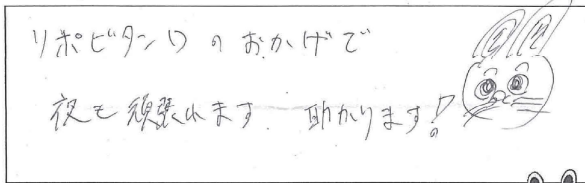 リポビタンDのおかげで
夜も頑張れます。助かります!